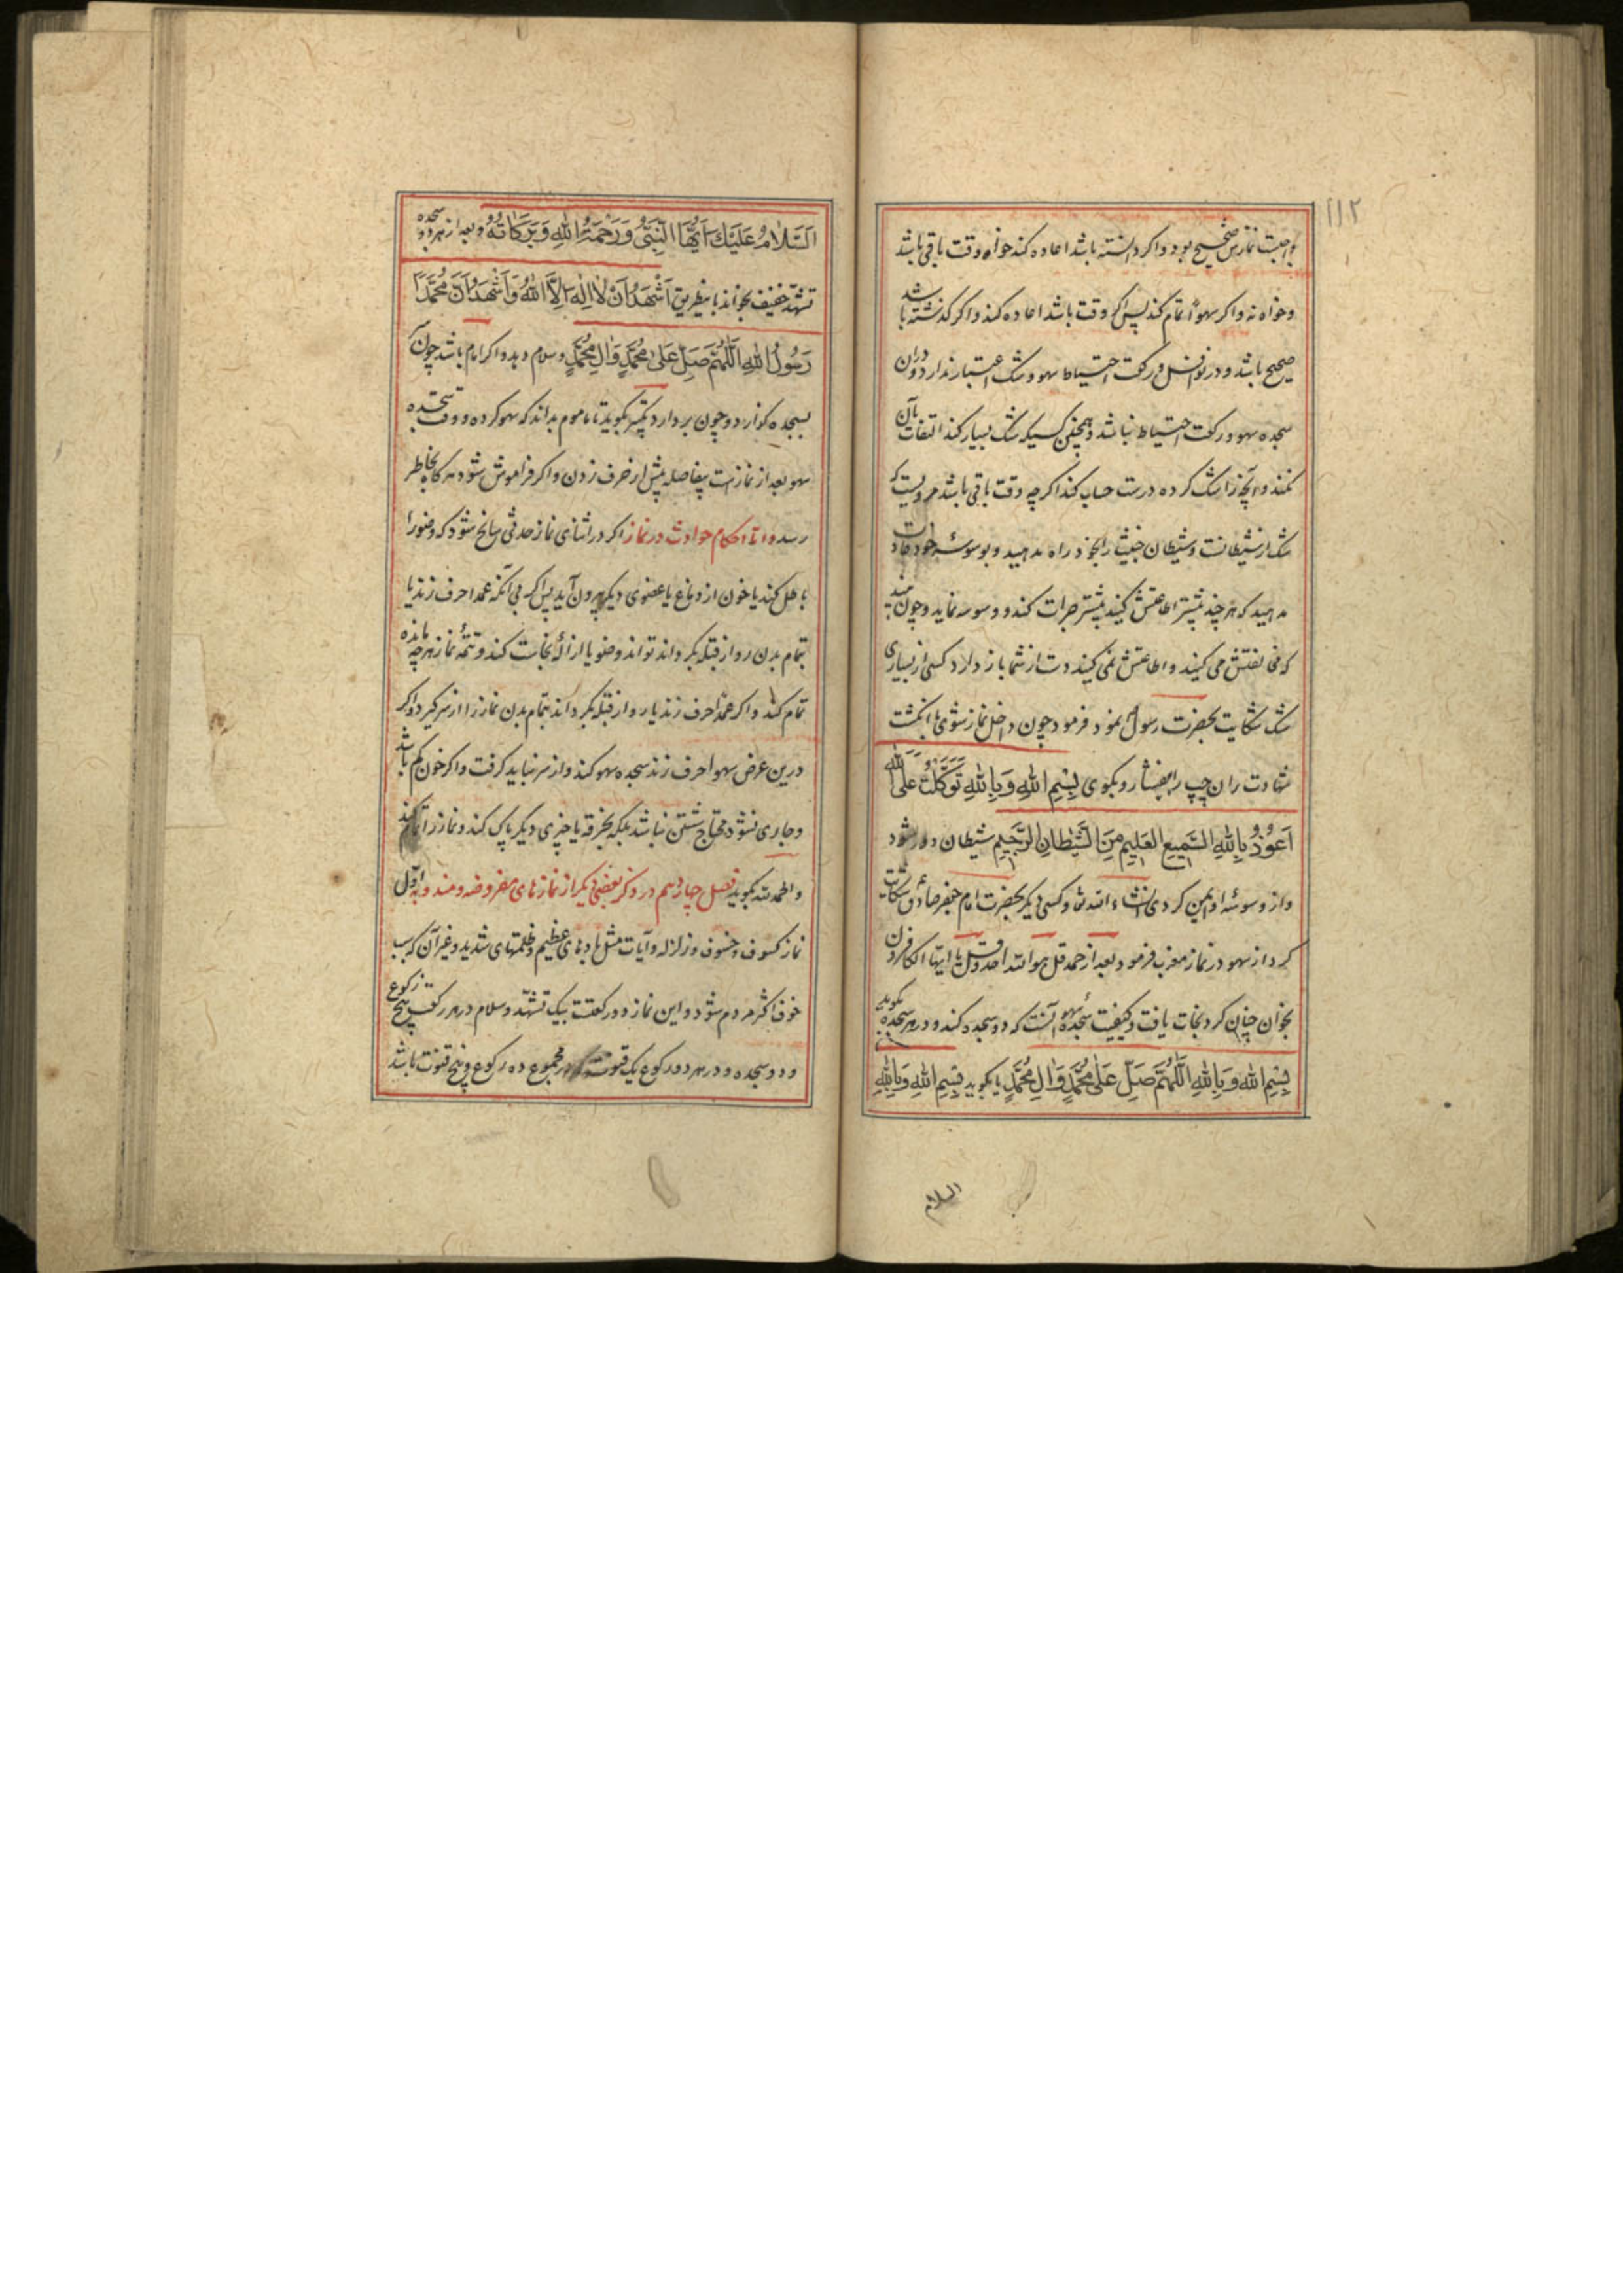 ۱۱۲
واجبت نمازش صحیح بود و اگر دانسته باشد اعاده کند خواه وقت باقی باشد
و خواه نه و اگر سهواً تمام کند پس اگر وقت باشد اعاده کند و اگر گذشته باشد
صحیح باشد و در نوافل و رکعت احتیاط سهو و شک اعتبار ندارد و در آن
سجده سهو و رکعت احتیاط نباشد و همچنین کسیکه شک بسیار کند التفات بآن
نکند و آنچه را شک کرده درست حساب کند اگرچه وقت باقی باشد مرویست که
شک از شیطانست و شیطان خبیث را بخود راه مدهید و بوسوسه خود عادت
مدهید که هر چند بیشتر اطاعتش کنید بیشتر جرات کند و وسوسه نماید و چون بیند
که مخالفتش می کنید و اطاعتش نمی کنید دست از شما باز دارد کسی از بسیاری
شک شکایت بحضرت رسول نمود فرمود چون داخل نماز شوی با انگشت
شهادت ران چپ را بفشار و بگوی بِسْمِ اللهِ وَ بِاللهِ تَوَكَّلْتُ عَلَى اللهِ
اَعُوذُ بِاللهِ السَّمِيعِ العَلِيمِ مِنَ الشَّيْطَانِ الرَّجِيمِ شیطان دور شود
و از وسوسه او ایمن گردی انشاء الله تعا و کسی دیگر بحضرت امام جعفر صادق شکایت
کرد از سهو در نماز مغرب فرمود بعد از حمد قل هو الله احد و قل یا ایها الکافرون
بخوان چنان کرد نجات یافت و کیفیت سجده سهو آنست که دو سجده کند و در هر سجده بگوید
بِسْمِ اللهِ وَ بِاللهِ اللّٰهُمَّ صَلِّ عَلَىٰ مُحَمَّدٍ وَ اٰلِ مُحَمَّدٍ یا بگوید بِسْمِ اللهِ وَ بِاللهِ
السلام
اَلسَّلَامُ عَلَيْكَ اَيُّهَا النَّبِيُّ وَ رَحْمَةُ اللهِ وَ بَرَكَاتُهُ و بعد از هر دو سجده
تشهد خفیف بخواند باینطریق اَشْهَدُ اَنْ لَا اِلٰهَ اِلَّا اللهُ وَ اَشْهَدُ اَنَّ مُحَمَّدًا
رَسُولُ اللهِ اَللّٰهُمَّ صَلِّ عَلَىٰ مُحَمَّدٍ وَ اٰلِ مُحَمَّدٍ و سلام دهد و اگر امام باشد چون سر
بسجده گذارد و چون بردارد تکبیر بگوید تا ماموم بداند که سهو کرده و وقت سجده
سهو بعد از نمازست بیفاصله پیش از حرف زدن و اگر فراموش شود هرگاه بخاطر
رسد و اما احکام حوادث در نماز اگر در اثنای نماز حدثی سانح شود که وضو را
باطل کند یا خون از دماغ یا عضوی دیگر بیرون آید پس اگر بی آنکه عمدا حرف زند یا
بتمام بدن رو از قبله بگرداند تواند وضو یا ازاله نجاست کند و تتمه نماز هر چه مانده
تمام کند و اگر عمداً حرف زند یا رو از قبله بگرداند بتمام بدن نماز را از سر گیرد و اگر
درین عرض سهوا حرف زند سجده سهو کند و از سر نباید گرفت و اگر خون کم باشد
و جاری نشود محتاج شستن نباشد بلکه بخرقه یا چیزی دیگر پاک کند و نماز را تمام کند
و الحمد لله بگوید فصل چهاردهم در ذکر بعضی دیگر از نمازهای مفروضه و مندوبه اوّل
نماز کسوف و خسوف و زلزله و آیات مثل بادهای عظیم و ظلمتهای شدید و غیر آن که سبب
خوف اکثر مردم شود و این نماز دو رکعتست بیک تشهّد و سلام در هر رکعت پنج رکوع
و دو سجده و در هر دو رکوع یک قنوت که در مجموع ده رکوع و پنج قنوت باشد